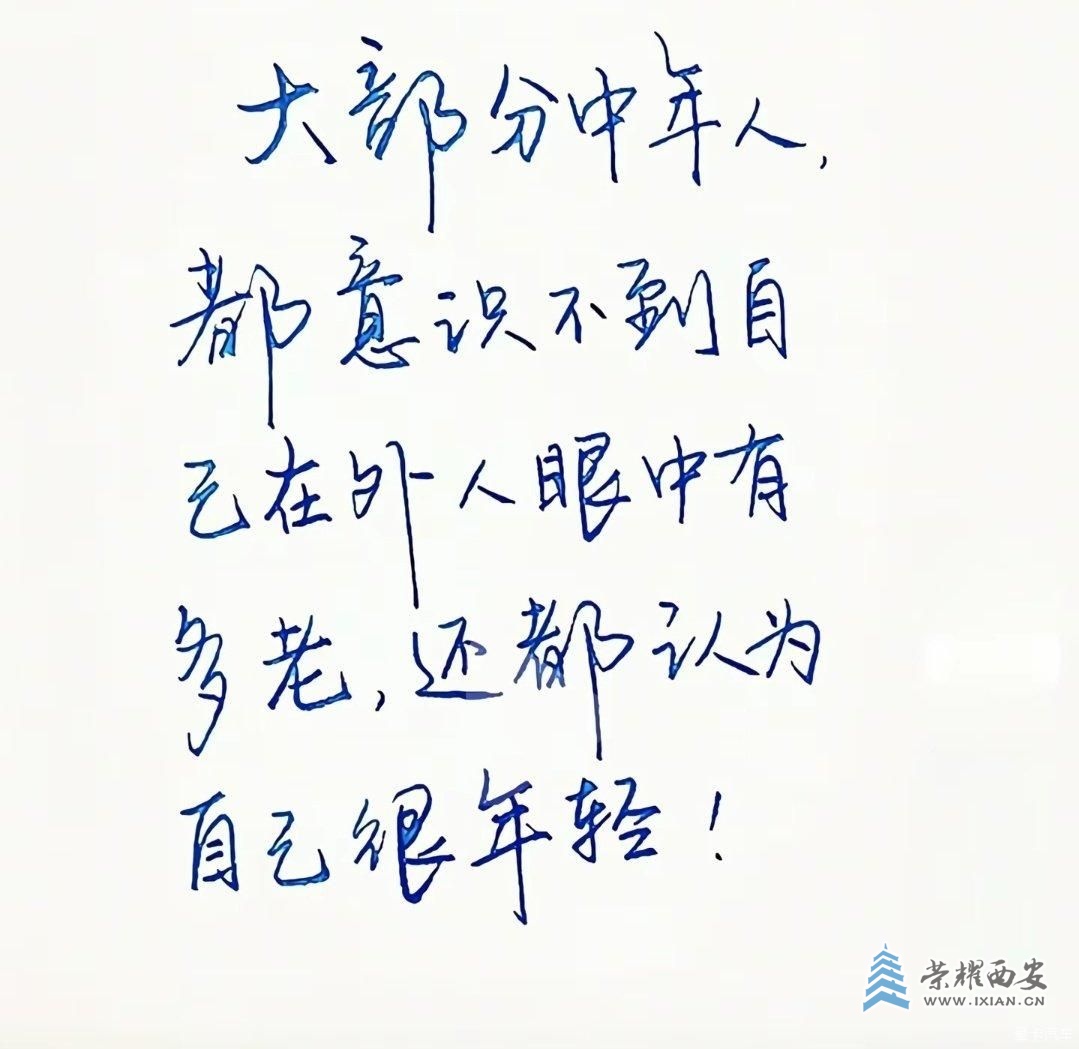 大部分中年人,
都意识不到自
己在外人眼中有
多老,还都认为
自己很年轻!
荣耀西安
WWW.IXIAN.CN
爱卡汽车